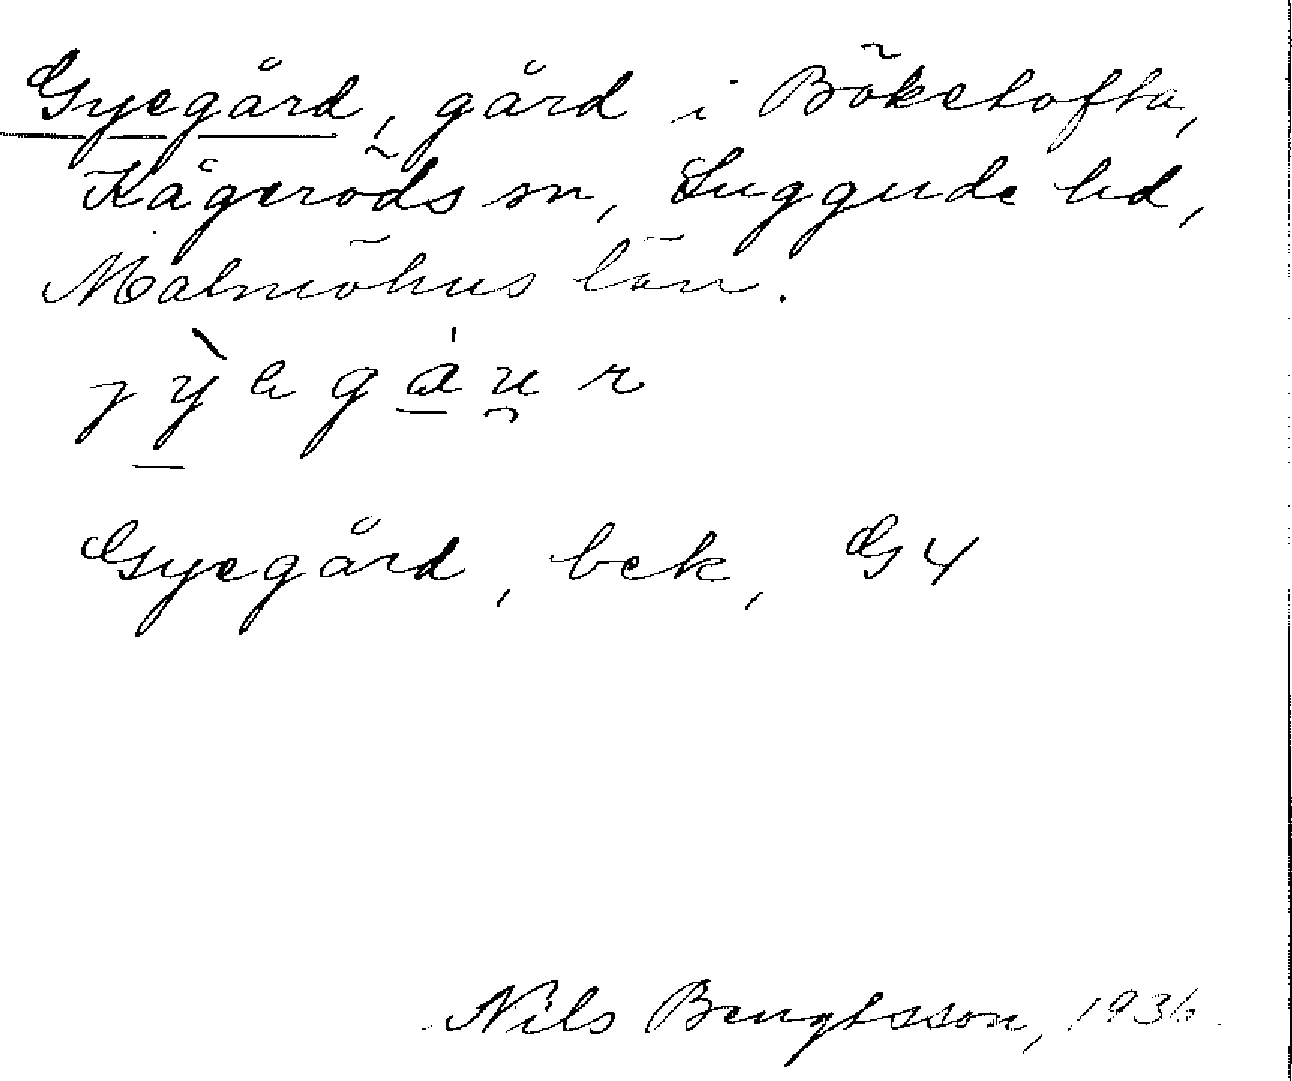 Gyegård, gård i Böketofta,
Kågeröds sn, Luggude hd,
Malmöhus län.
Gyegård, bek, G4
Nils Bengtsson, 1936